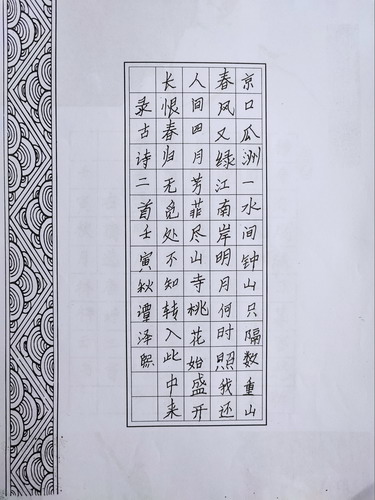 京口瓜洲一水间钟山只隔数重山
春风又绿江南岸明月何时照我还
人间四月芳菲尽山寺桃花始盛开
长恨春归无觅处不知转入此中来
录古诗二首壬寅秋谭泽熙